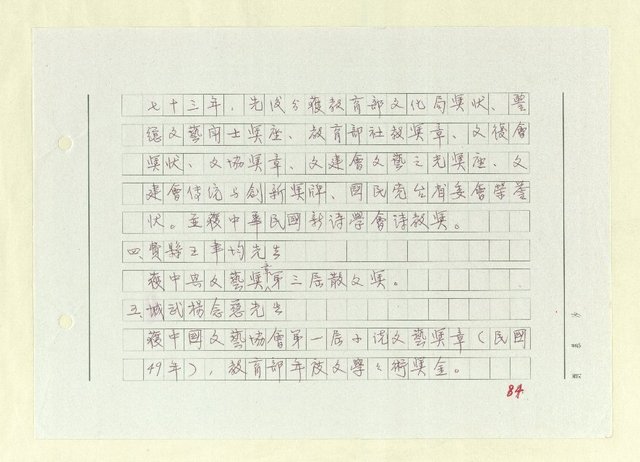 七十三年，先後分獲教育部文化局獎狀、警
總文藝鬥士獎座、教育部社教獎章、文復會
獎狀、文協獎章、文建會文藝之光獎座、文
建會傳統与創新獎牌、國民党台省委會榮譽
狀。並獲中華民國新詩學會诗教獎。
四、費縣王事均先生
獲中興文藝獎章第三屆散文獎。
五、城武楊念慈先生
獲中國文藝協會第一屆小说文藝獎章（民國
49年），教育部年度文學、術獎金。
84